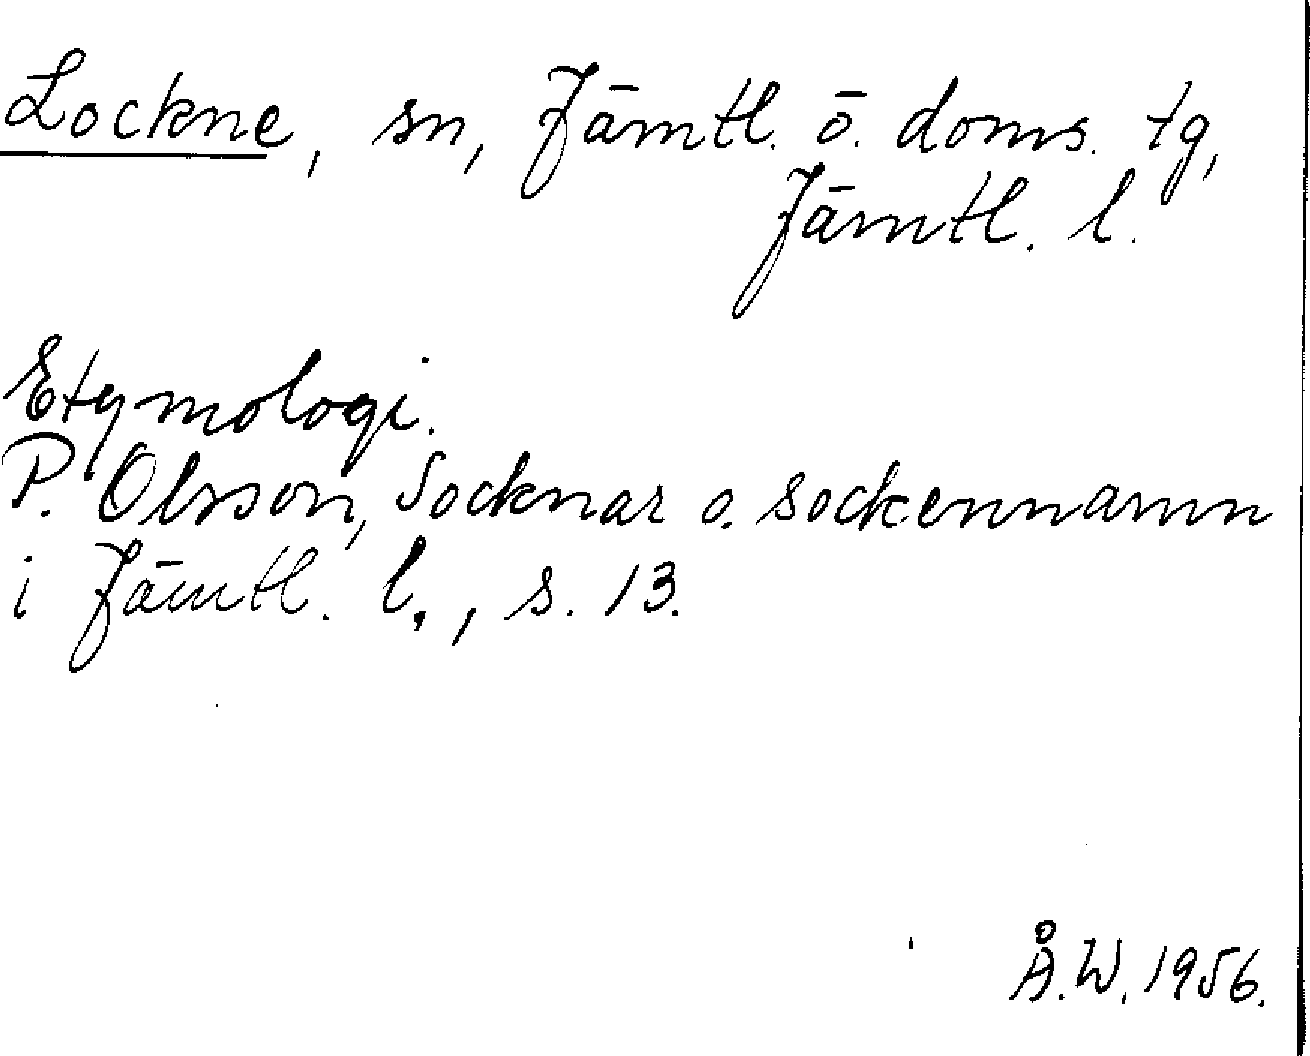 Lockne, sn, Jämtl. ö. doms. tg,
Jämtl. l.
Etymologi.
P. Olsson, Socknar o. sockennamn
i Jämtl. l., s. 13.
Å.W. 1956.